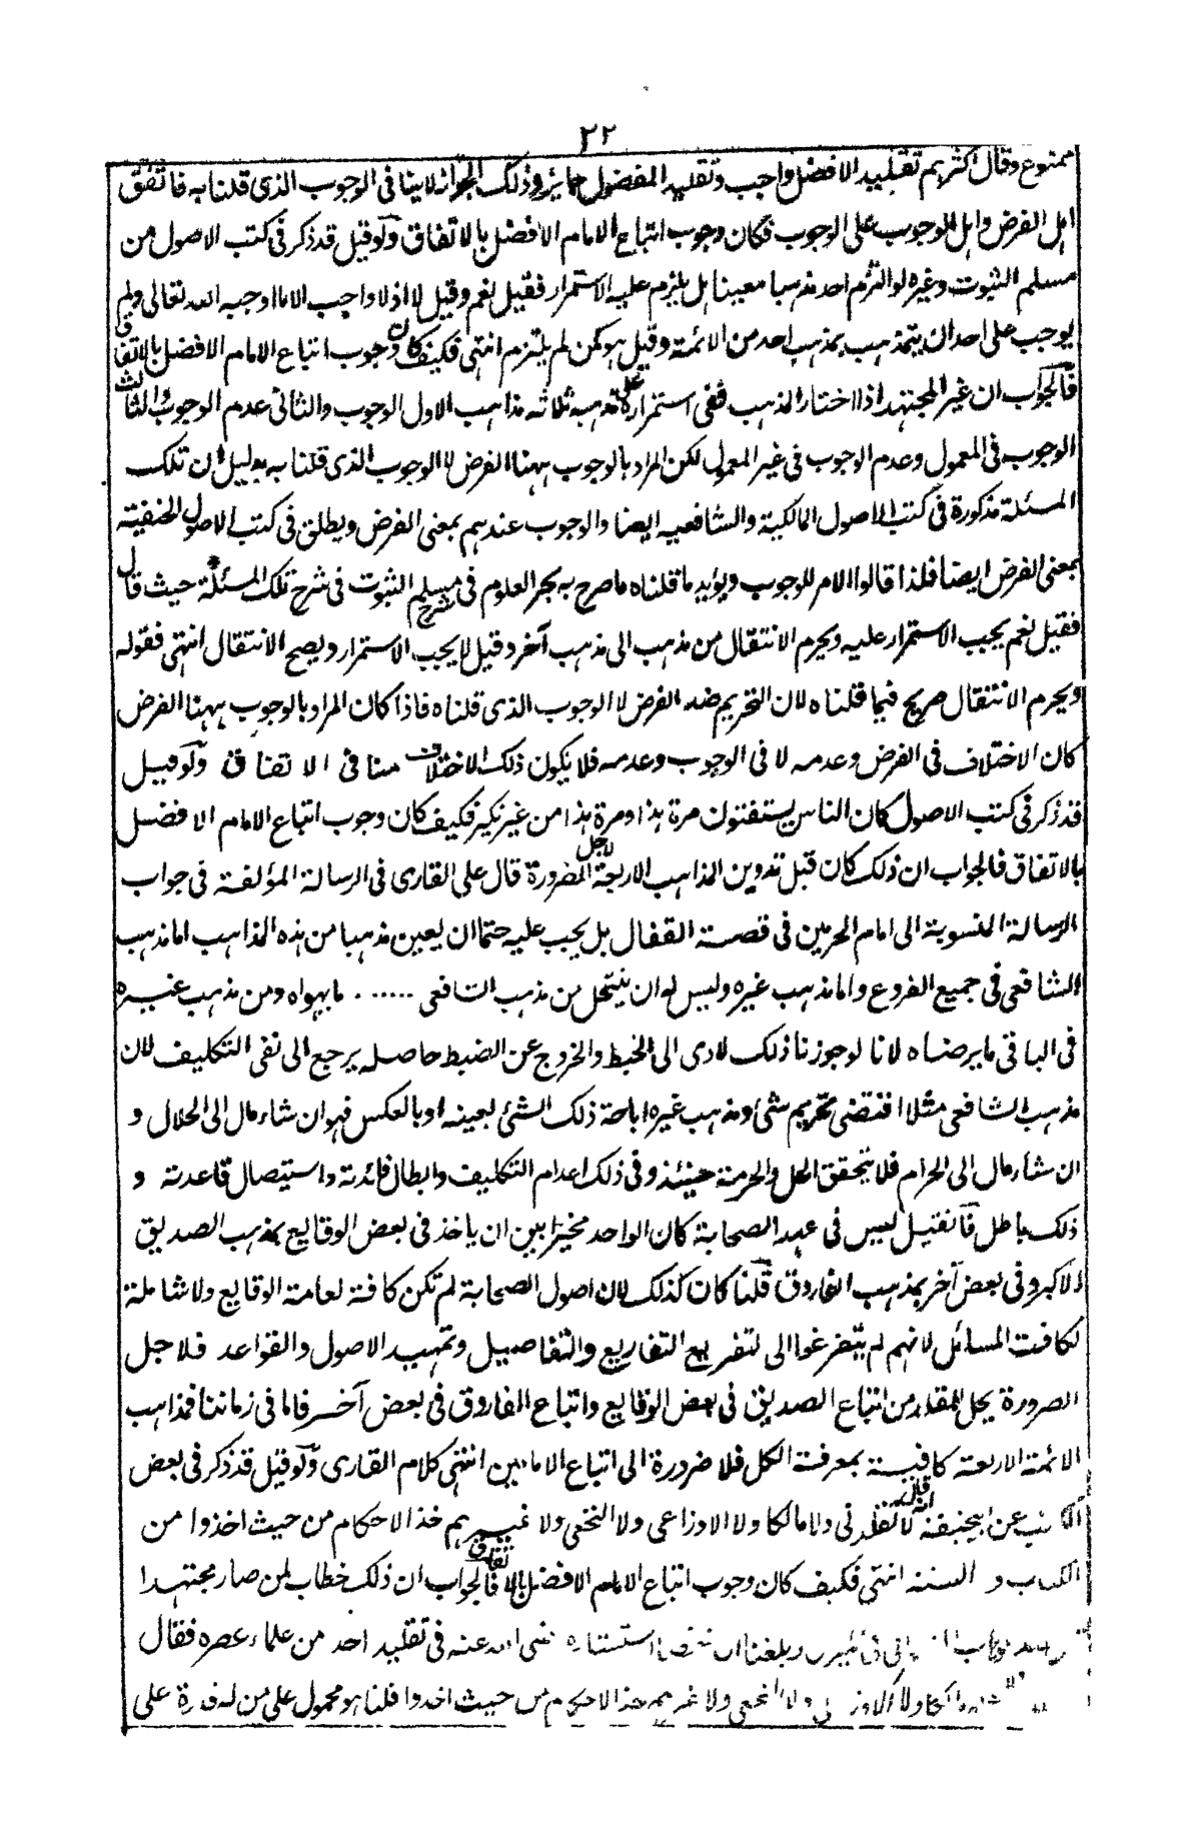 ٢٢
ممنوع وقال اكثرهم تقليد الافضل واجب وتقليد المفضول جائز وذلك الجواز لا ينافى الوجوب الذى قلنا به فاتفق
اهل الفرض واهل الوجوب على الوجوب فكان وجوب اتباع الامام الافضل بالاتفاق ولو قيل قد ذكر فى كتب الاصول من
مسلم الثبوت وغيره لو التزم احد مذهبا معينا هل يلزم عليه الاستمرار فقيل نعم وقيل لا اذ لا واجب الا ما اوجبه الله تعالى ولم
يوجب على احد ان يتمذهب بمذهب احد من الائمة وقيل هو كمن لم يلتزم انتهى فكيف كان وجوب اتباع الامام الافضل بالاتفاق
فالجواب ان غير المجتهد اذا اختار المذهب ففى استمراره على مذهبه ثلاثة مذاهب الاول الوجوب والثانى عدم الوجوب والثالث
الوجوب فى المعمول وعدم الوجوب فى غير المعمول لكن المراد بالوجوب ههنا الفرض لا الوجوب الذى قلنا به بدليل ان تلك
المسئلة مذكورة فى كتب الاصول المالكية والشافعيه ايضا والوجوب عندهم بمعنى الفرض ويطلق فى كتب الاصول الحنفية
بمعنى الفرض ايضا فلذا قالوا الامر للوجوب ويؤيد ما قلناه ما صرح به بحر العلوم فى شرح مسلم الثبوت فى شرح تلك المسئلة حيث قال
فقيل نعم يجب الاستمرار عليه ويحرم الانتقال من مذهب الى مذهب آخر وقيل لا يجب الاستمرار ويصح الانتقال انتهى فقوله
ويحرم الانتقال صريح فيما قلناه لان التحريم ضد الفرض لا الوجوب الذى قلناه فاذا كان المراد بالوجوب ههنا الفرض
كان الاختلاف فى الفرض وعدمه لا فى الوجوب وعدمه فلا يكون ذلك الاختلاف منافى الاتفاق ولو قيل
قد ذكر فى كتب الاصول كان الناس يستفتون مرة هذا ومرة هذا من غير نكير فكيف كان وجوب اتباع الامام الافضل
بالاتفاق فالجواب ان ذلك كان قبل تدوين المذاهب الاربعة لاجل الضرورة قال على القارى فى الرسالة المؤلفة فى جواب
الرسالة المنسوبة الى امام الحرمين فى قصة القفال بل يجب عليه حتما ان يعين مذهبا من هذه المذاهب اما مذهب
الشافعى فى جميع الفروع واما مذهب غيره وليس له ان ينتحل من مذهب الشافعى ...... ما يهواه ومن مذهب غيره
فى الباقى ما يرضاه لانا لو جوزنا ذلك لادى الى الخبط والخروج عن الضبط حاصله يرجع الى نفى التكليف لان
مذهب الشافعى مثلا اقتضى تحريم شئ ومذهب غيره اباحة ذلك الشئ بعينه او بالعكس فهو ان شاء مال الى الحلال و
ان شاء مال الى الحرام فلا يتحقق الحل والحرمة حينئذ وفى ذلك اعدام التكليف وابطال فائدته واستيصال قاعدته و
ذلك باطل فان قيل ليس فى عهد الصحابة كان الواحد مخيرا بين ان ياخذ فى بعض الوقايع بمذهب الصديق
الاكبر وفى بعض آخر بمذهب الفاروق قلنا كان كذلك لان اصول الصحابة لم تكن كافة لعامة الوقايع ولا شاملة
لكافة المسائل لانهم لم يتفرغوا الى تفريع التفاريع والتفاصيل وتمهيد الاصول والقواعد فلاجل
الضرورة يحل للمقلد من اتباع الصديق فى بعض الوقايع واتباع الفاروق فى بعض آخر فاما فى زماننا فمذاهب
الائمة الاربعة كافية بمعرفة الكل فلا ضرورة الى اتباع الامامين انتهى كلام القارى ولو قيل قد ذكر فى بعض
الكتب عن ابيحنيفة انه قال لا تقلدنى ولا مالكا ولا الاوزاعى ولا النخعى ولا غيرهم خذ الاحكام من حيث اخذوا من
الكتاب و السنة انتهى فكيف كان وجوب اتباع الامام الافضل بالاتفاق فالجواب ان ذلك خطاب لمن صار مجتهدا
وبلغنا ان استشاره رضى الله عنه فى تقليد احد من علماء عصره فقال
ولا النخعى ولا غيرهم خذ الاحكام من حيث اخذوا قلنا هو محمول على من له قدرة على